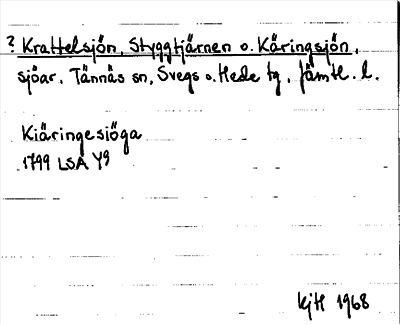 ? Krattelsjön, Styggtjärnen o. Käringsjön,
sjöar. Tännäs sn, Svegs o. Hede tg, Jämtl. l.
Kiäringesiöga
1799 LSA Y9
KjH 1968